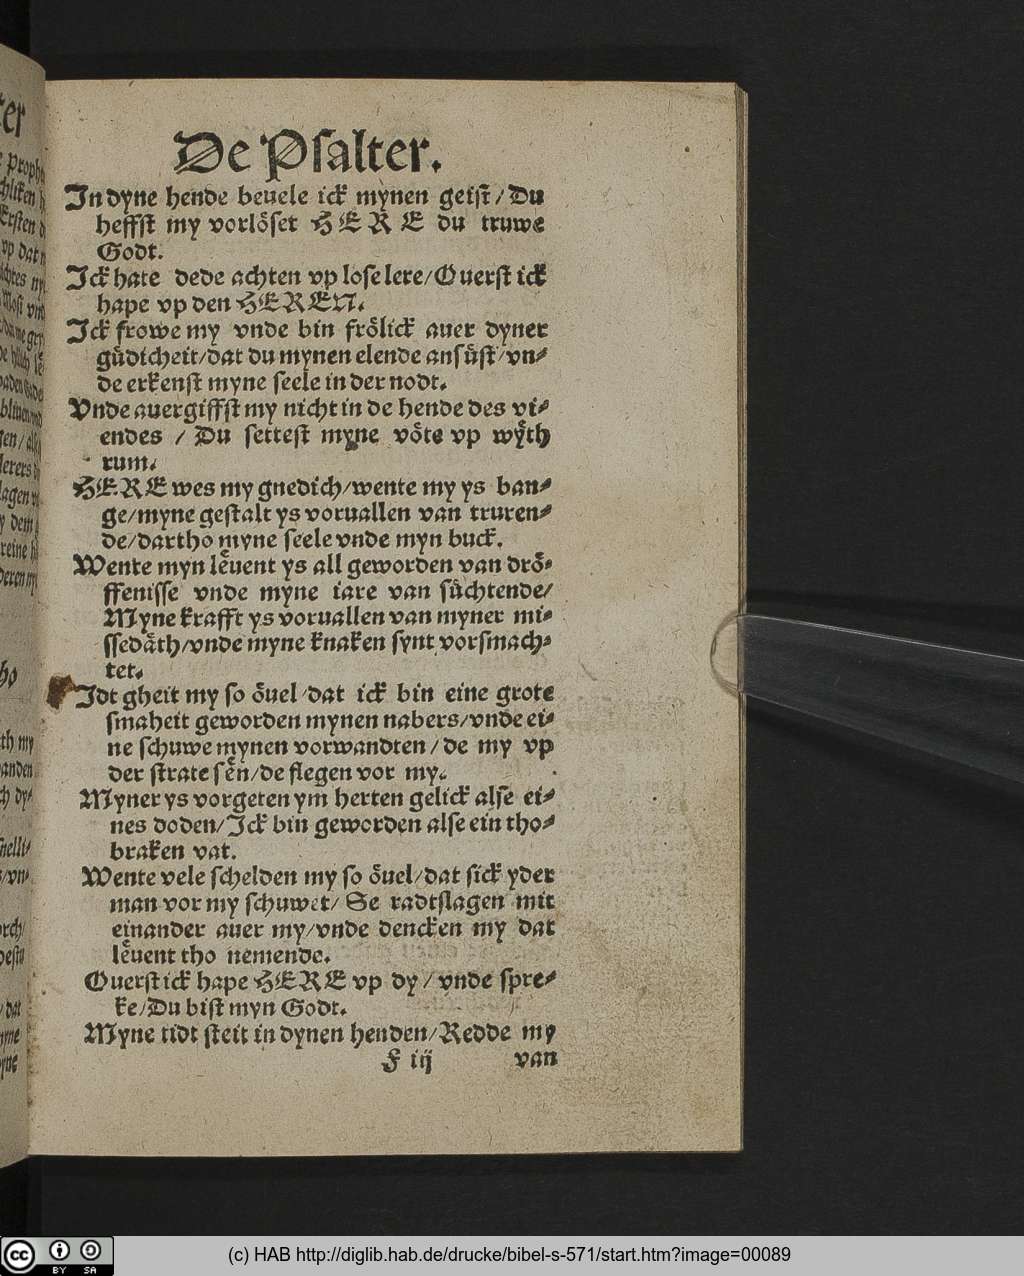 De Psalter.
In dyne hende beuele ick mynen geist/ Du
heffst my vorlöset HERE du truwe
Godt.
Ick hate dede achten vp lose lere/ Ouerst ick
hape vp den HEREN.
Ick frowe my vnde bin frölick auer dyner
güdicheit/ dat du mynen elende ansüst/ vn⸗
de erkenst myne seele in der nodt.
Vnde auergiffst my nicht in de hende des vi⸗
endes / Du settest myne vöte vp wyth
rum.
HERE wes my gnedich/ wente my ys ban⸗
ge/ myne gestalt ys voruallen van truren⸗
de/ dartho myne seele vnde myn buck.
Wente myn leuent ys all geworden van drö⸗
ffenisse vnde myne iare van süchtende/
Myne krafft ys voruallen van myner mi⸗
ssedäth/ vnde myne knaken synt vorsmach⸗
tet.
Idt gheit my so öuel/ dat ick bin eine grote
smaheit geworden mynen nabers/ vnde ei⸗
ne schuwe mynen vorwandten/ de my vp
der strate sen/ de flegen vor my.
Myner ys vorgeten ym herten gelick alse ei⸗
nes doden/ Ick bin geworden alse ein tho⸗
braken vat.
Wente vele schelden my so öuel/ dat sick yder
man vor my schuwet/ Se radtslagen mit
einander auer my/ vnde dencken my dat
leuent tho nemende.
Ouerst ick hape HERE vp dy / vnde spre⸗
ke/ Du bist myn Godt.
Myne tidt steit in dynen henden/ Redde my
F iij van
(c) HAB http://diglib.hab.de/drucke/bibel-s-571/start.htm?image=00089
cc BY SA